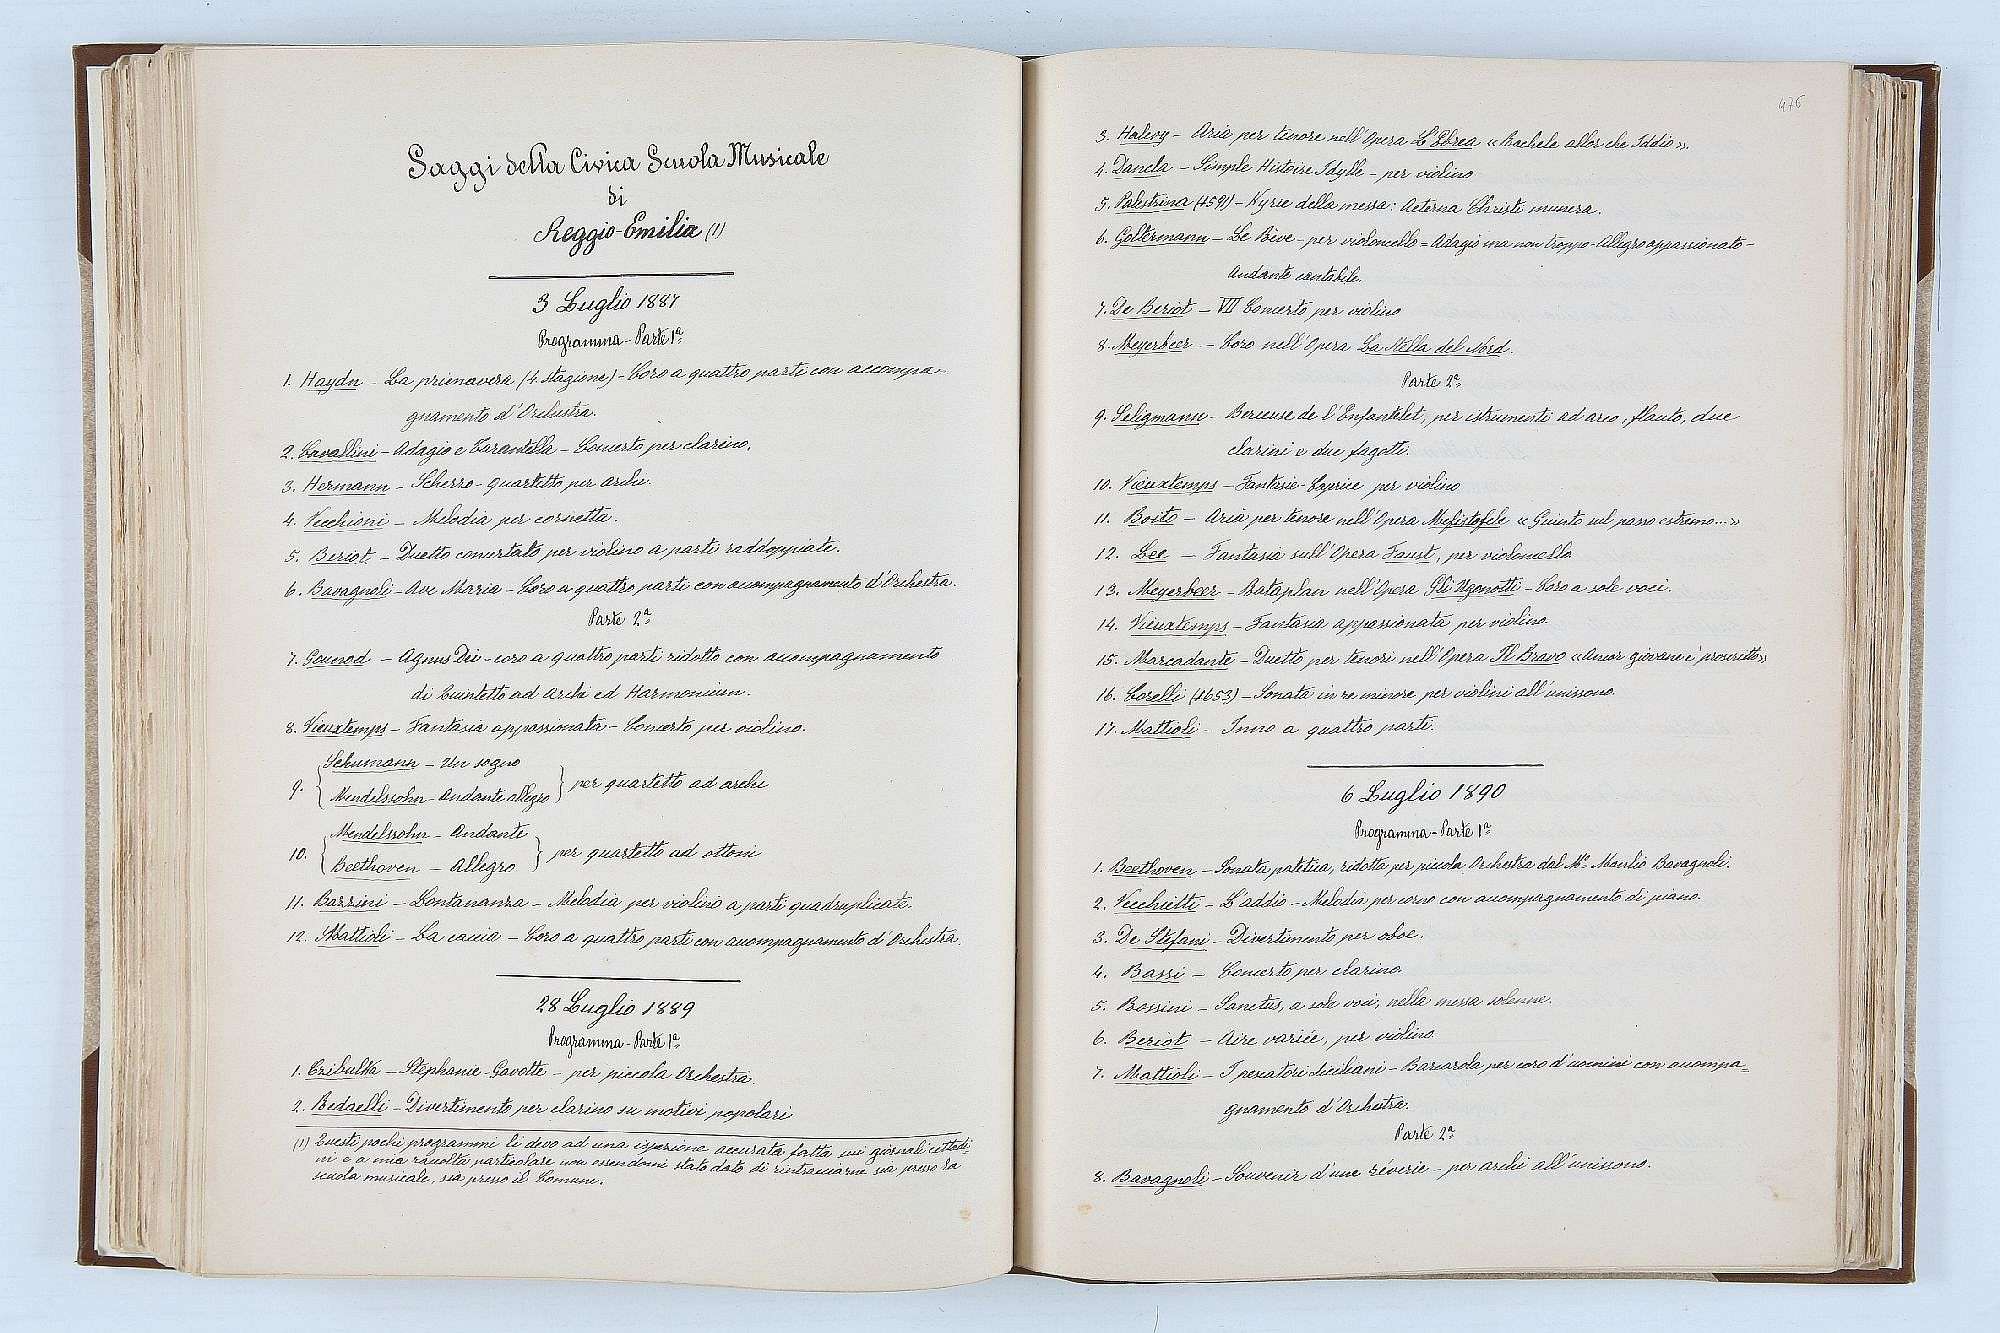 Saggi della Civica Scuola Musicale
di
Reggio-Emilia (1)
3 Luglio 1887
Programma - Parte 1ª
1. Haydn - La primavera (4 stagione) - Coro a quattro parti con accompa-
gnamento d'Orchestra.
2. Cavallini - Adagio e Tarantella - Concerto per clarino.
3. Hermann - Scherzo - quartetto per archi.
4. Vecchioni - Melodia per cornetta.
5. Beriot - Duetto concertato per violino a parti raddoppiate.
6. Bavagnoli - Ave Maria - Coro a quattro parti con accompagnamento d'Orchestra.
Parte 2ª
7. Gounod - Agnus Dei - coro a quattro parti ridotto con accompagnamento
di Quintetto ad Archi ed Harmonium.
8. Vieuxtemps - Fantasia appassionata - Concerto per violino.
9. { Schumann - Un sogno
Mendelssohn - Andante allegro } per quartetto ad archi
10. { Mendelssohn - Andante
Beethoven - Allegro } per quartetto ad ottoni
11. Bazzini - Lontananza - Melodia per violino a parti quadruplicate.
12. Mattioli - La caccia - Coro a quattro parti con accompagnamento d'Orchestra.
28 Luglio 1889
Programma - Parte 1ª
1. Czibulka - Stephanie-Gavotte - per piccola Orchestra
2. Bedaelli - Divertimento per clarino su motivi popolari
(1) Questi pochi programmi li devo ad una ispezione accurata fatta sui giornali cittadi-
ni e a mia raccolta particolare non essendomi stato dato di rintracciarne sia presso la
scuola musicale, sia presso il Comune.
476
3. Halevy - Aria per tenore nell'Opera L'Ebrea «Rachele allor che Iddio».
4. Dancla - Simple Histoire Idylle - per violino
5. Palestrina (1591) - Kyrie della messa: Aeterna Christi munera.
6. Goltermann - Le Rève - per violoncello = Adagio ma non troppo - Allegro appassionato -
Andante cantabile.
7. De Beriot - VII Concerto per violino
8. Meyerbeer - Coro nell'Opera La Stella del Nord.
Parte 2ª
9. Seligmann - Berceuse de l'Enfantelet, per istrumenti ad arco, flauto, due
clarini e due fagotti.
10. Vieuxtemps - Fantasie-Caprice per violino
11. Boito - Aria per tenore nell'Opera Mefistofele «Giunto sul passo estremo...»
12. Lee - Fantasia sull'Opera Faust, per violoncello
13. Meyerbeer - Rataplan nell'Opera Gli Ugonotti - Coro a sole voci.
14. Vieuxtemps - Fantasia appassionata per violino
15. Marcadante - Duetto per tenori nell'Opera Il Bravo «Amor giovane è proscritto»
16. Corelli (1653) - Sonata in re minore per violini all'unissono
17. Mattioli - Inno a quattro parti.
6 Luglio 1890
Programma - Parte 1ª
1. Beethoven - Sonata patetica, ridotta per piccola Orchestra dal Mº Manlio Bavagnoli.
2. Vecchietti - L'addio - Melodia per corno con accompagnamento di piano.
3. De Stefani - Divertimento per oboe.
4. Bassi - Concerto per clarino
5. Rossini - Sanctus, a sole voci, nella messa solenne.
6. Beriot - Aire variée, per violino
7. Mattioli - I pescatori siciliani - Barcarola per coro d'uomini con accompa=
gnamento d'Orchestra.
Parte 2ª
8. Bavagnoli - Souvenir d'une réverie - per archi all'unissono.